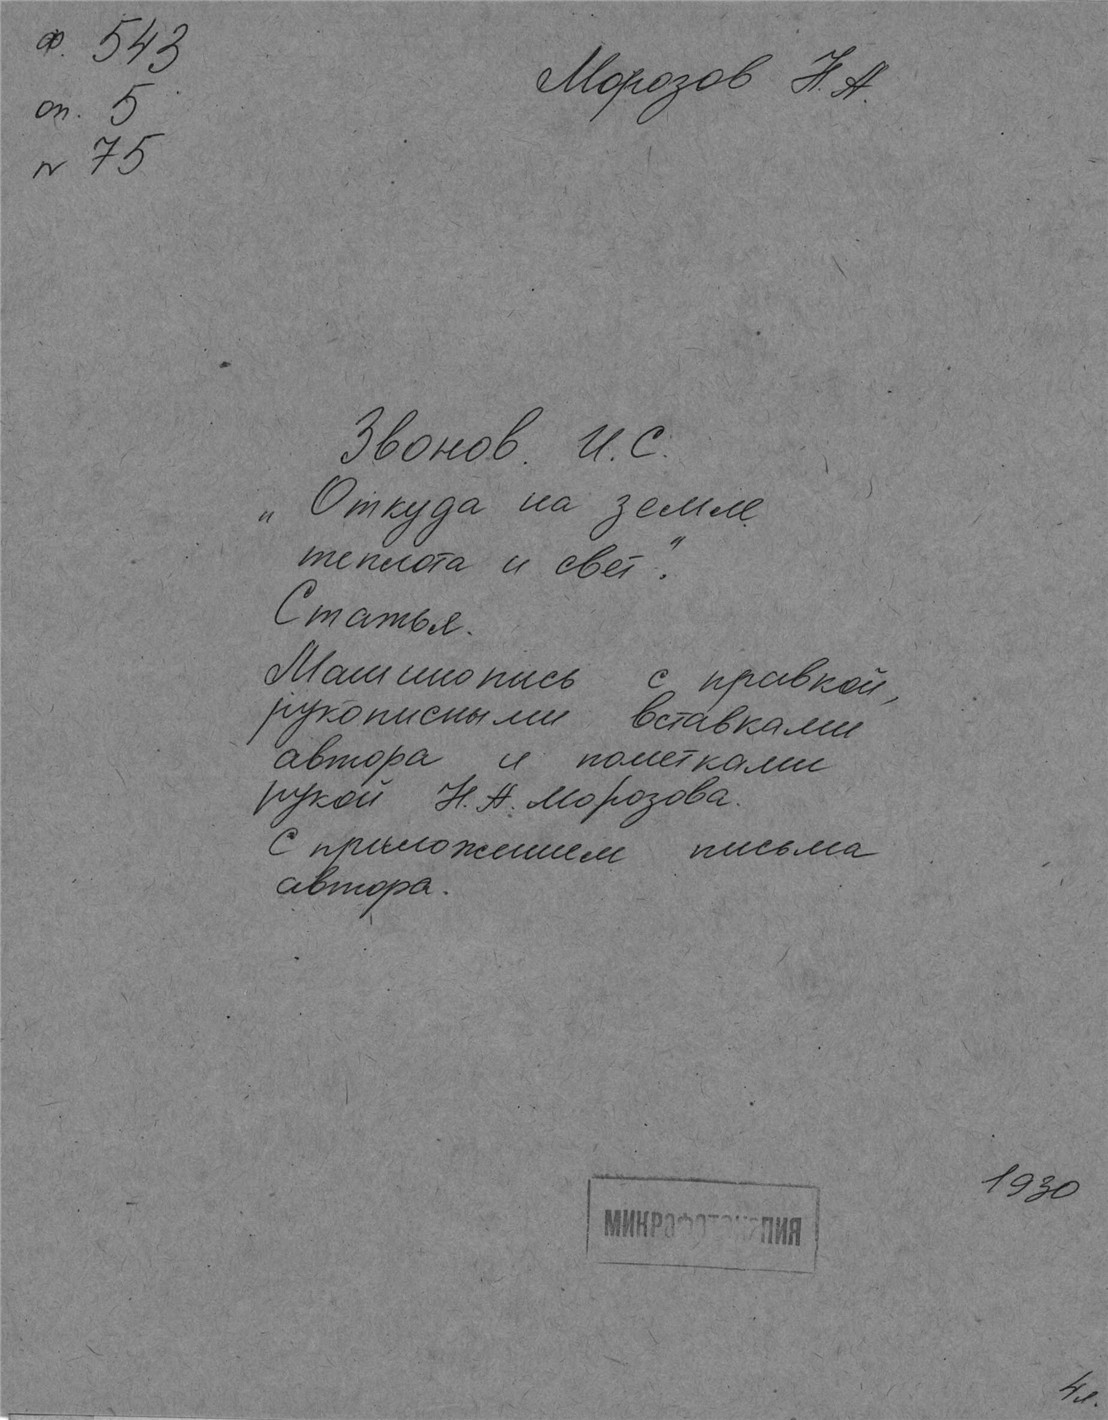 ф. 543
оп. 5
№ 75
Морозов Н.А.
Звонов И.С.
„Откуда на земле
теплота и свет".
Статья.
Машинопись с правкой,
рукописными вставками
автора и пометками
рукой Н.А. Морозова.
С приложением письма
автора.
1930
МИКРОФОТОКОПИЯ
4л.